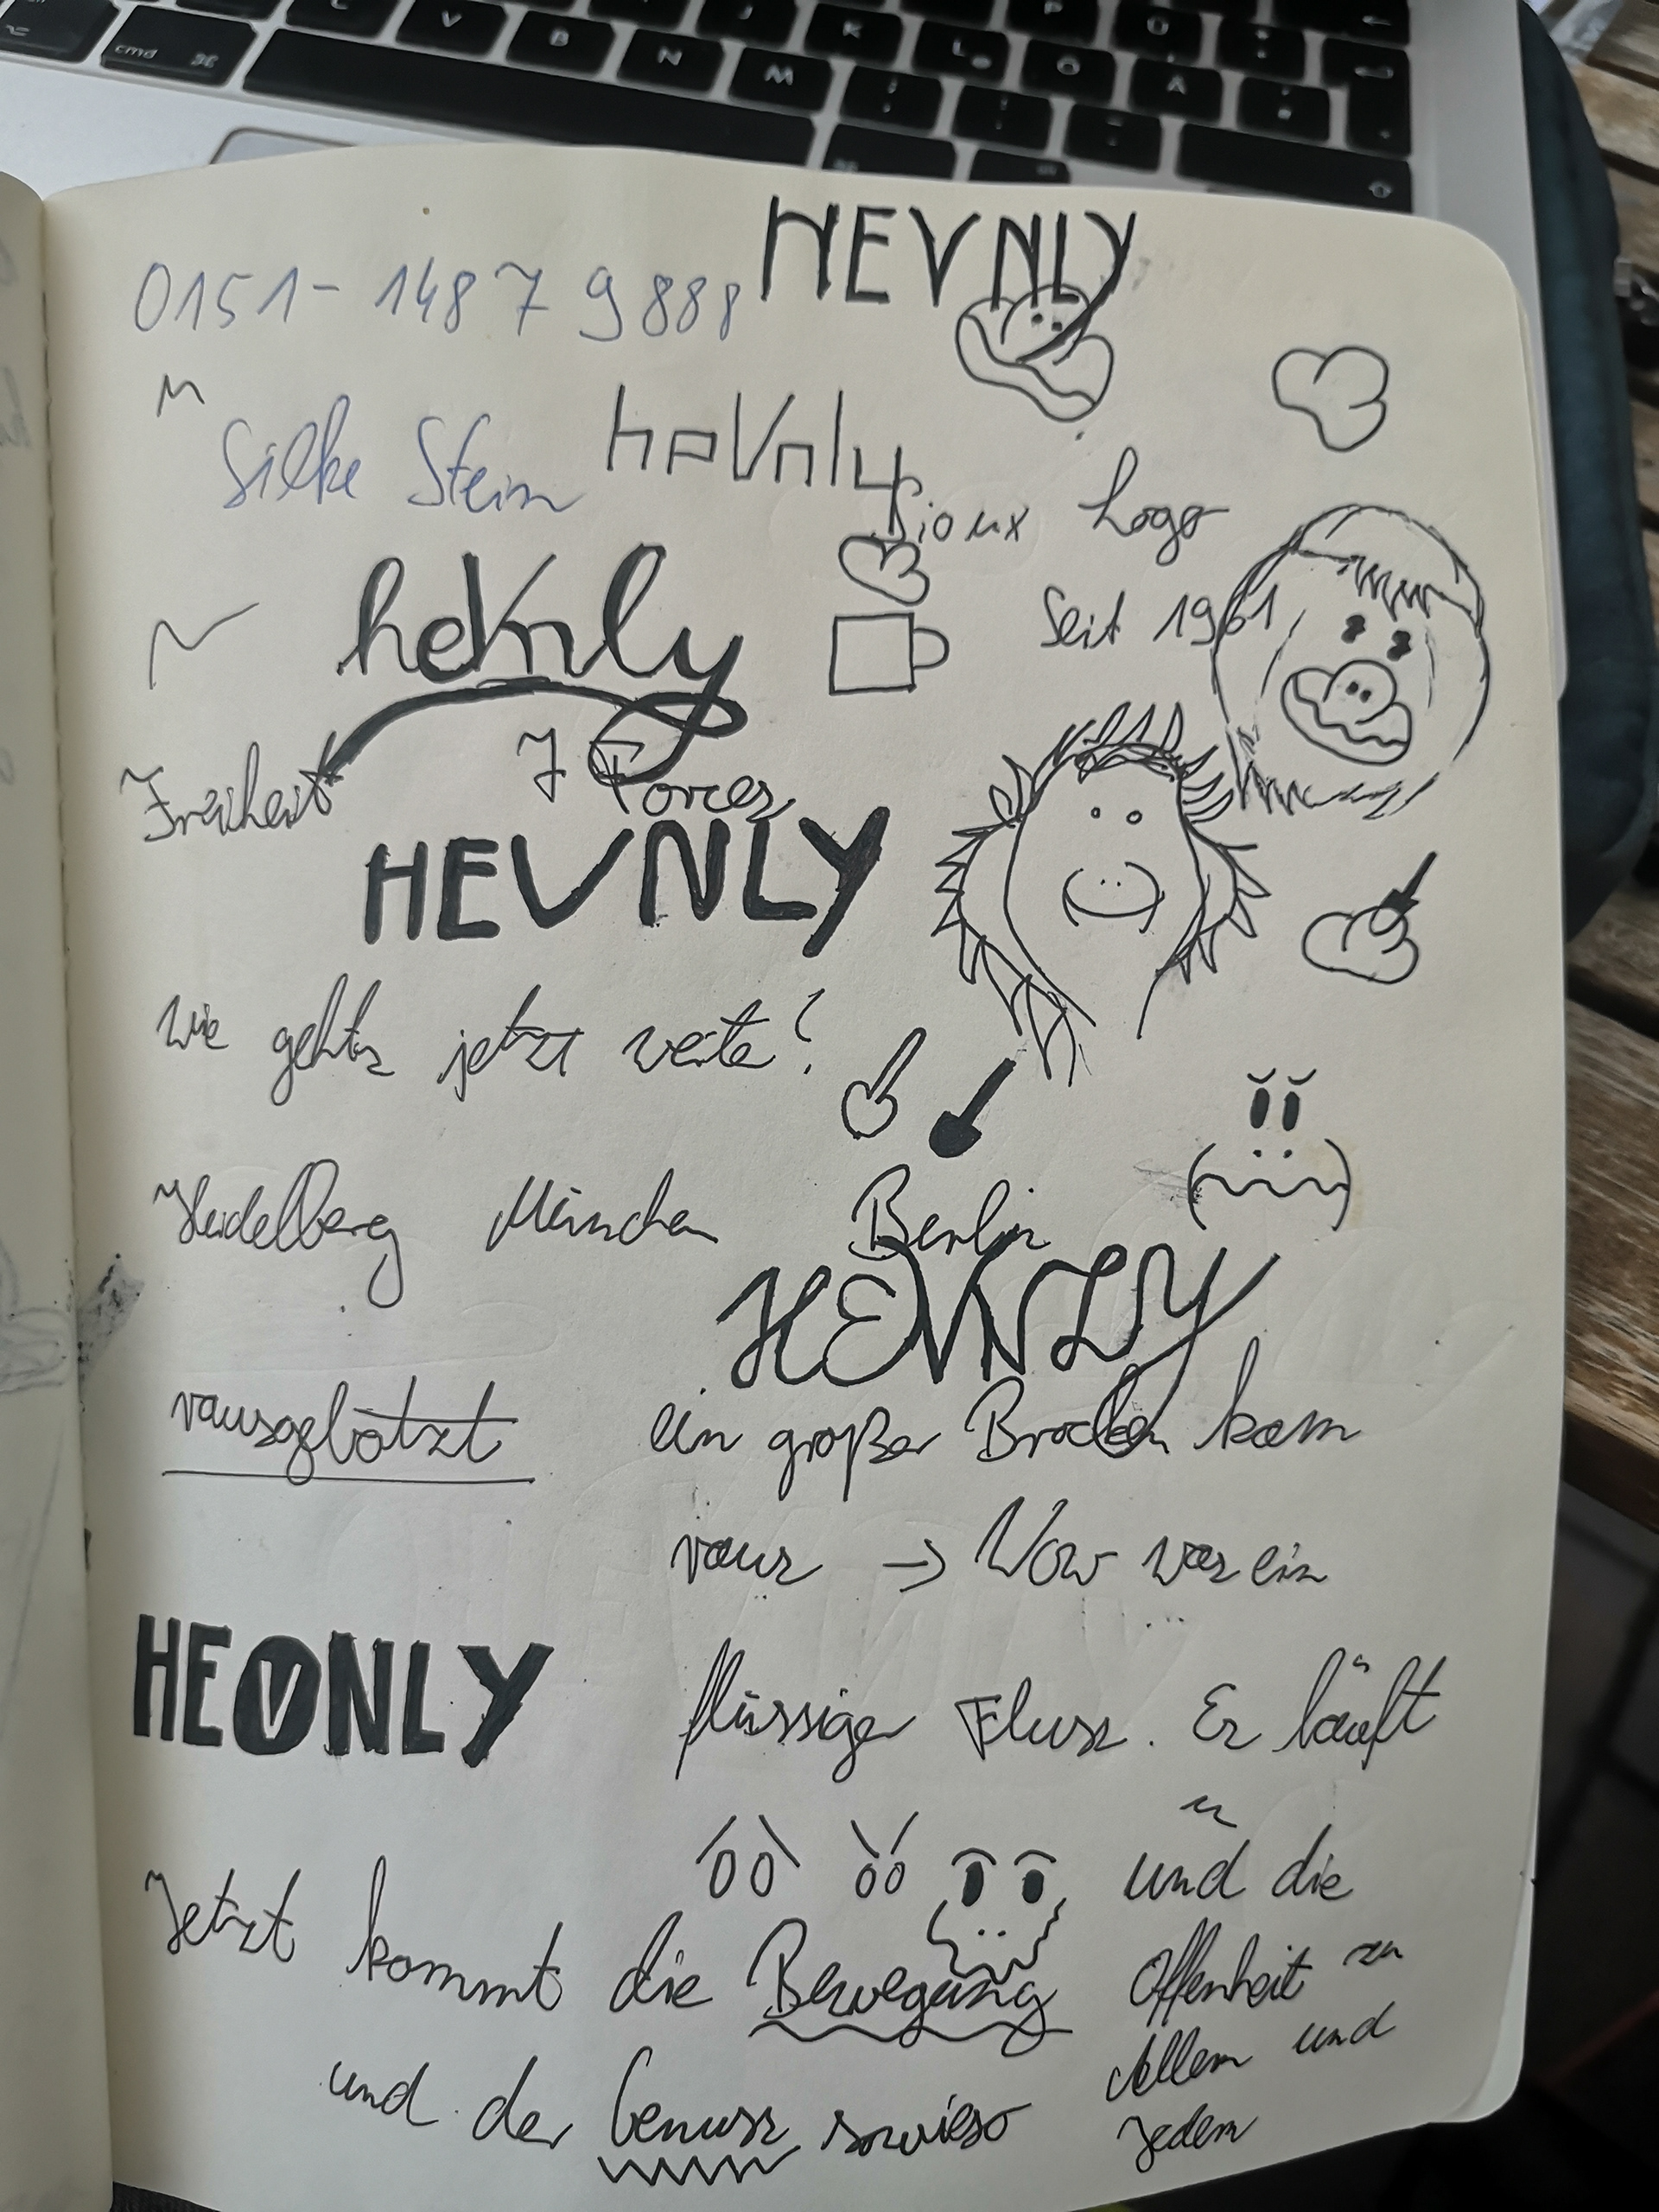 cmd ⌘
C V B N M J K L Ö P Ü Ä
HEVNLY
0151-148 7 9888
Silke Stein
heVnly
Sioux Logo
heVnly
Seit 1961
Freiheit
7 Forces
HEVNLY
Wie gehts jetzt weite?
Heidelberg München Berlin
HEVNLY
rausgeblotzt
ein großer Brocken kam
raus → Wow was ein
HEVNLY
flüssiger Fluss. Er läuft
Jetzt kommt die Bewegung
und der Genuss sowieso
und die
Offenheit zu
Allem und
Jedem